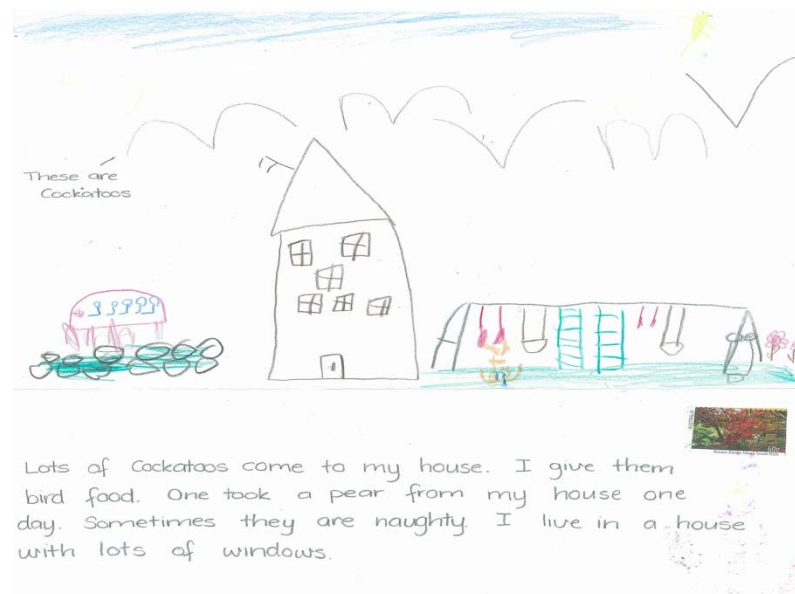 These are
Cockatoos
Lots of Cockatoos come to my house. I give them
bird food. One took a pear from my house one
day. Sometimes they are naughty. I live in a house
with lots of windows.